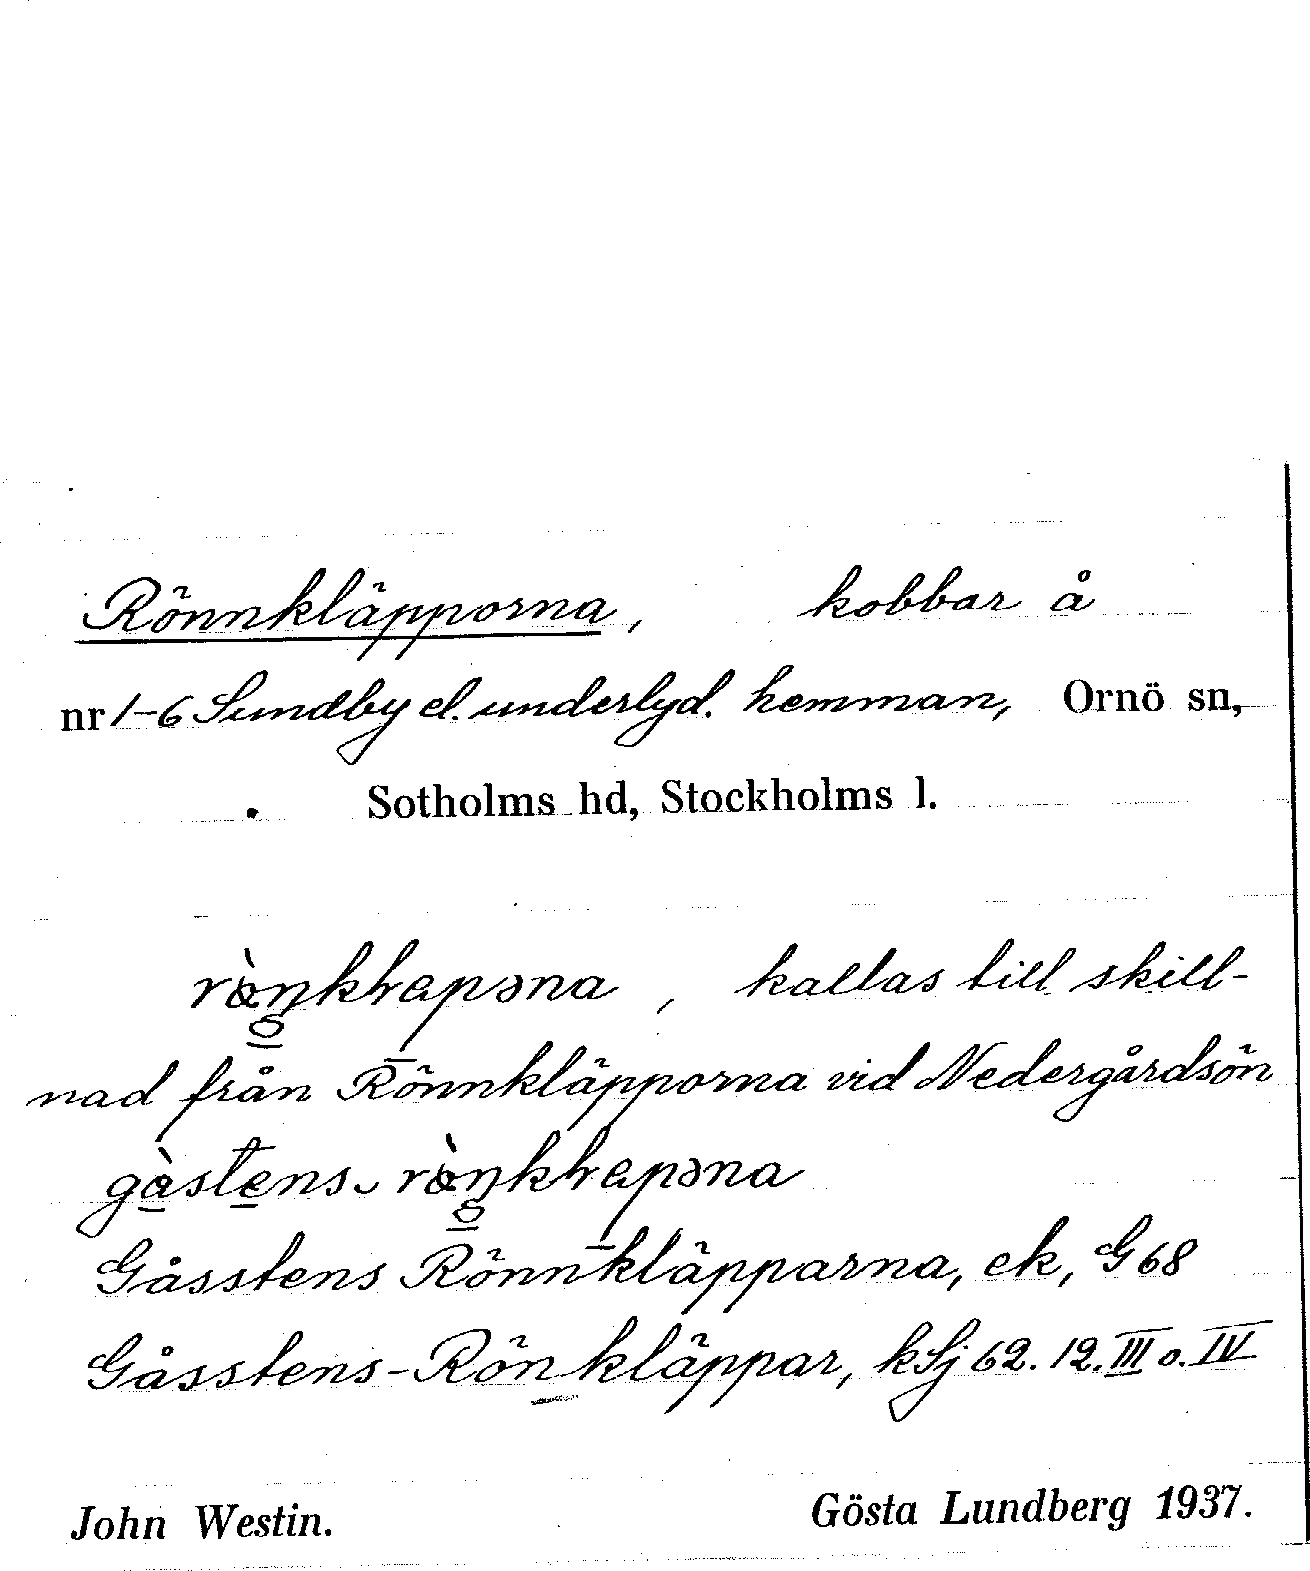 Rönnkläpporna, kobbar å
nr 1-6 Sundby el. underlyd. hemman, Ornö sn,
Sotholms hd, Stockholms l.
kallas till skill-
nad från Rönnkläpporna vid Nedergårdsön
Gåsstens Rönnkläpparna, ek, G 68
Gåsstens-Rönkläppar, kSj 62. 12. III o. IV
John Westin. Gösta Lundberg 1937.